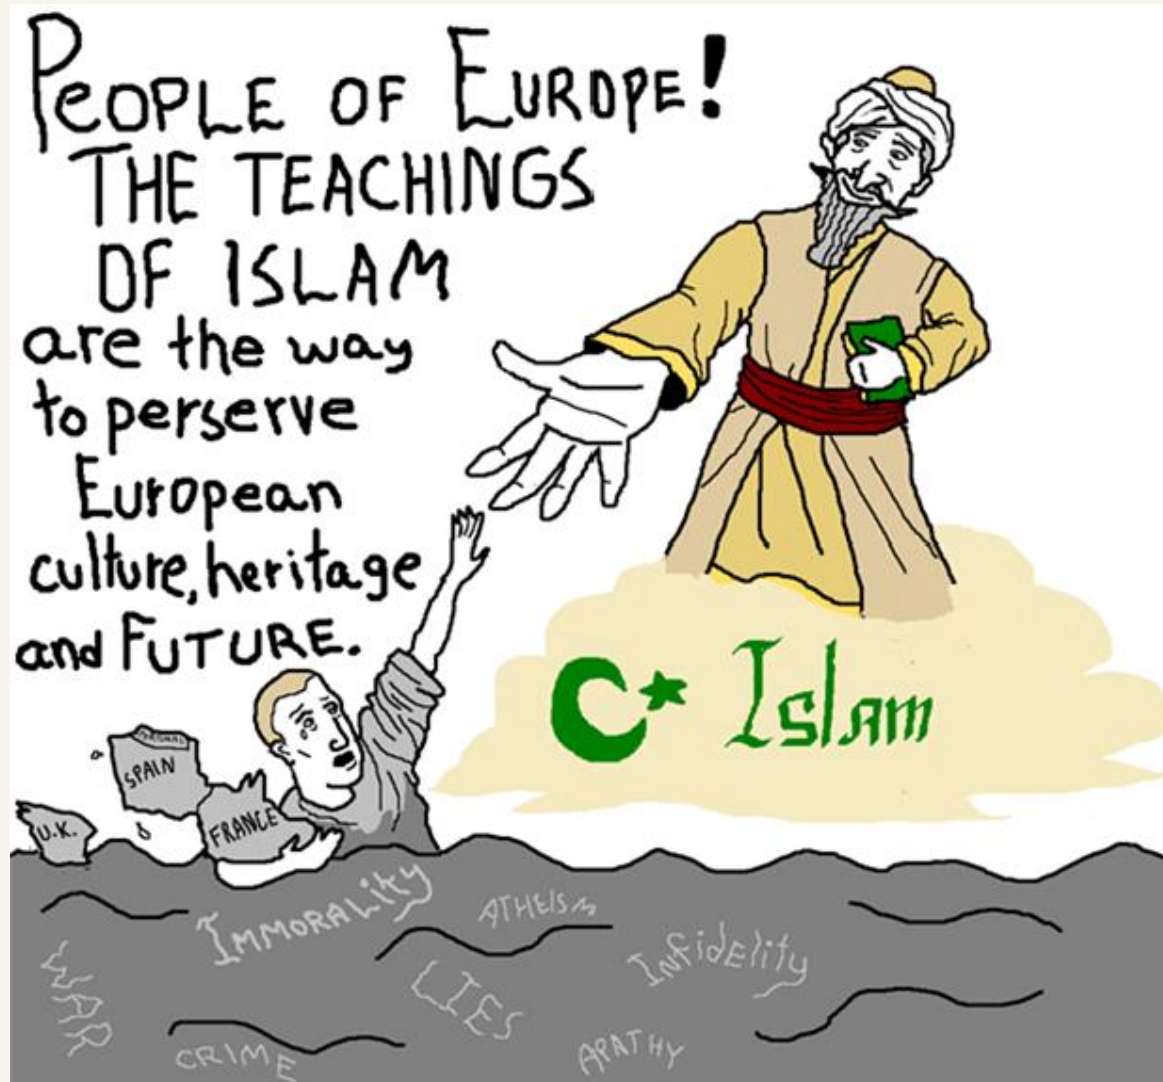 PEOPLE OF EUROPE!
THE TEACHINGS
OF ISLAM
are the way
to perserve
European
culture, heritage
and FUTURE.
Islam
SPAIN
U.K.
FRANCE
IMMORALITY
ATHEISM
Infidelity
WAR
LIES
CRIME
APATHY